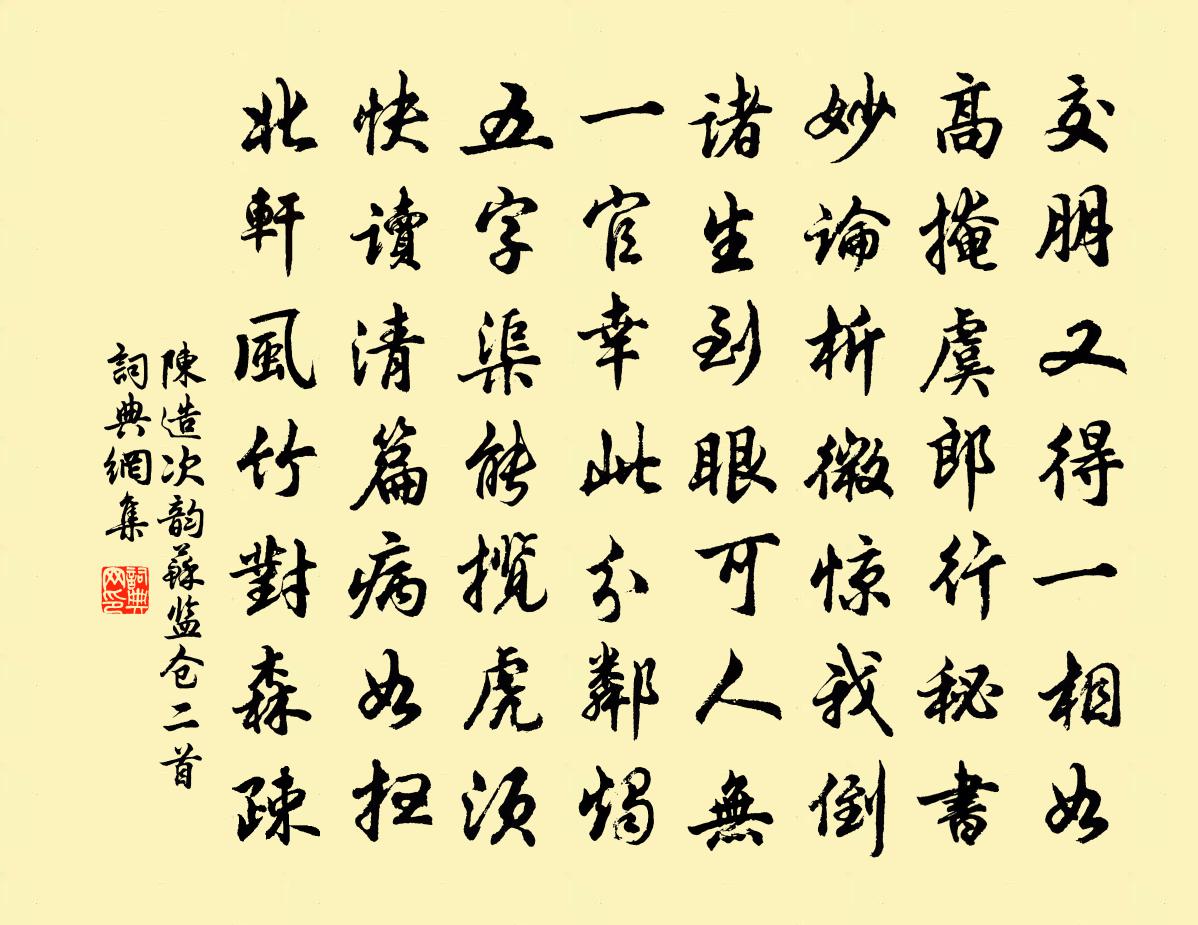 交朋又得一相如
高掩虞郎行秘書
妙論析微惊我倒
諸生到眼可人無
一官幸此分鄰燭
五字渠能揽虎須
快讀清篇病如扫
北軒風竹對森疎
陳造次韵蘇监仓二首
詞典網集
詞典